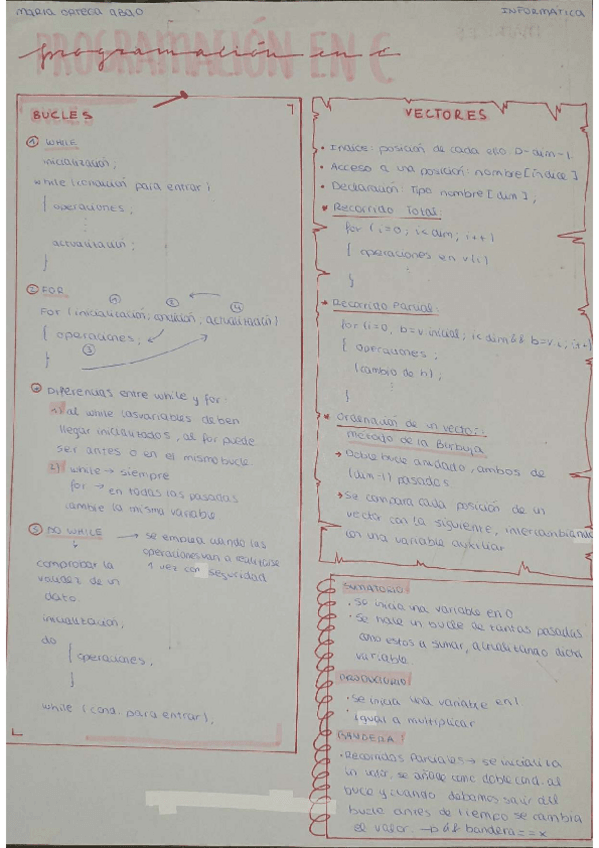 MARIA ORTEGA ABAD
INFORMÁTICA
PROGRAMACIÓN EN C
programación en c
BUCLES
① WHILE
inicialización;
while (condición para entrar)
{ operaciones;
⋮
actualización;
}
② FOR
① ② ④
For (inicialización; condición; actualización)
{ operaciones;
} ③
Diferencias entre while y for:
al while las variables deben
llegar inicializadas, al for puede
ser antes o en el mismo bucle.
while → siempre
for → en todas las pasadas
cambie la misma variable
③ DO WHILE → se emplea cuando las
operaciones van a realizarse
1 vez con seguridad
comprobar la
validez de un
dato.
inicialización;
do
{ operaciones;
}
while (cond. para entrar);
VECTORES
• Indice: posición de cada epo. 0-dim-1.
• Acceso a una posición: nombre [índice]
• Declaración: Tipo nombre [dim];
• Recorrido Total:
for (i=0; i<dim; i++)
{ operaciones en v[i]
⋮
}
• Recorrido Parcial:
for (i=0, b=v.inicial; i<dim && b=v.i.; i++)
{ operaciones;
(cambio de b);
⋮
}
• Ordenación de un vector:
Método de la Burbuja
→ Doble bucle anidado, ambos de
(dim-1) pasadas
→ Se compara cada posición de un
vector con la siguiente, intercambiando
con una variable auxiliar
SUMATORIO:
• Se inicia una variable en 0
• Se hace un bucle de tantas pasadas
como estos a sumar, acreditando dicha
variable.
PRODUCTORIO:
• Se inicia una variable en 1
• Igual a multiplicar
BANDERA:
• Recorridos Parciales → se inicializa
in valor, se añade como doble cond. al
bucle y cuando debamos salir del
bucle antes de tiempo se cambia
el valor → && bandera == x